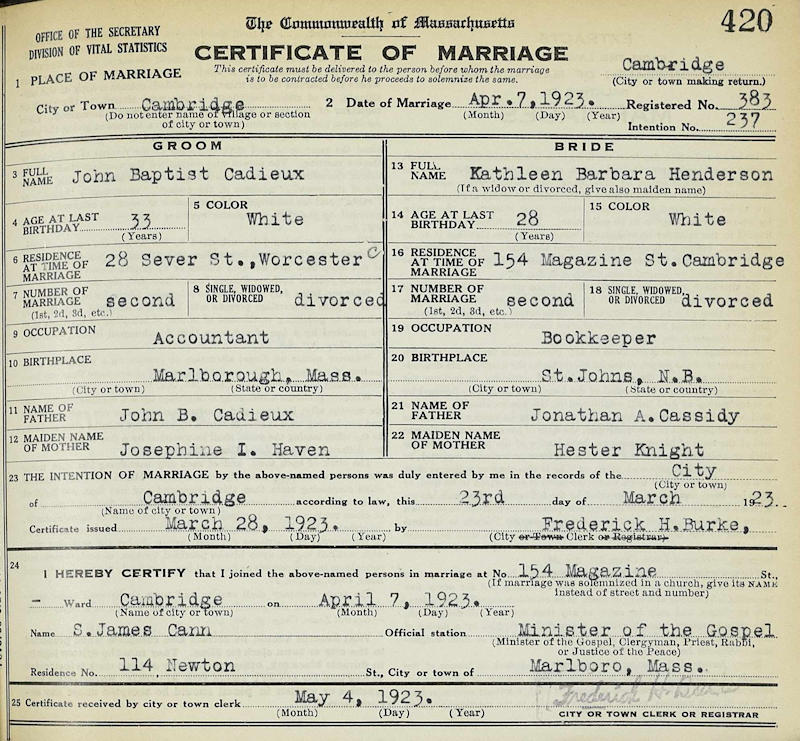 420
The Commonwealth of Massachusetts
OFFICE OF THE SECRETARY
DIVISION OF VITAL STATISTICS
CERTIFICATE OF MARRIAGE
This certificate must be delivered to the person before whom the marriage
is to be contracted before he proceeds to solemnize the same.
Cambridge
(City or town making return.)
1 PLACE OF MARRIAGE
City or Town Cambridge 2 Date of Marriage Apr.7,1923. Registered No. 383
(Do not enter name of village or section
of city or town) (Month) (Day) (Year)
Intention No. 237
GROOM BRIDE
3 FULL NAME John Baptist Cadieux
13 FULL NAME Kathleen Barbara Henderson
(If a widow or divorced, give also maiden name)
4 AGE AT LAST BIRTHDAY 33 (Years) 5 COLOR White
14 AGE AT LAST BIRTHDAY 28 (Years) 15 COLOR White
6 RESIDENCE AT TIME OF MARRIAGE 28 Sever St.,Worcester C
16 RESIDENCE AT TIME OF MARRIAGE 154 Magazine St.Cambridge
7 NUMBER OF MARRIAGE second (1st, 2d, 3d, etc.) 8 SINGLE, WIDOWED, OR DIVORCED divorced
17 NUMBER OF MARRIAGE second (1st, 2d, 3d, etc.) 18 SINGLE, WIDOWED, OR DIVORCED divorced
9 OCCUPATION Accountant
19 OCCUPATION Bookkeeper
10 BIRTHPLACE Marlborough, Mass.
(City or town) (State or country)
20 BIRTHPLACE St.Johns, N.B.
(City or town) (State or country)
11 NAME OF FATHER John B. Cadieux
21 NAME OF FATHER Jonathan A.Cassidy
12 MAIDEN NAME OF MOTHER Josephine I. Haven
22 MAIDEN NAME OF MOTHER Hester Knight
23 THE INTENTION OF MARRIAGE by the above-named persons was duly entered by me in the records of the City
(City or town)
of Cambridge according to law, this 23rd day of March 1923.
(Name of city or town)
Certificate issued March 28, 1923. by Frederick H.Burke,
(Month) (Day) (Year) (City or Town Clerk or Registrar)
24 I HEREBY CERTIFY that I joined the above-named persons in marriage at No 154 Magazine St.,
(If marriage was solemnized in a church, give its NAME
instead of street and number)
– Ward Cambridge on April 7, 1923.
(Name of city or town) (Month) (Day) (Year)
Name S.James Cann Official station Minister of the Gospel
(Minister of the Gospel, Clergyman, Priest, Rabbi,
or Justice of the Peace)
Residence No. 114 Newton St., City or town of Marlboro, Mass.
25 Certificate received by city or town clerk May 4, 1923.
(Month) (Day) (Year)
Frederick H. Burke
CITY OR TOWN CLERK OR REGISTRAR